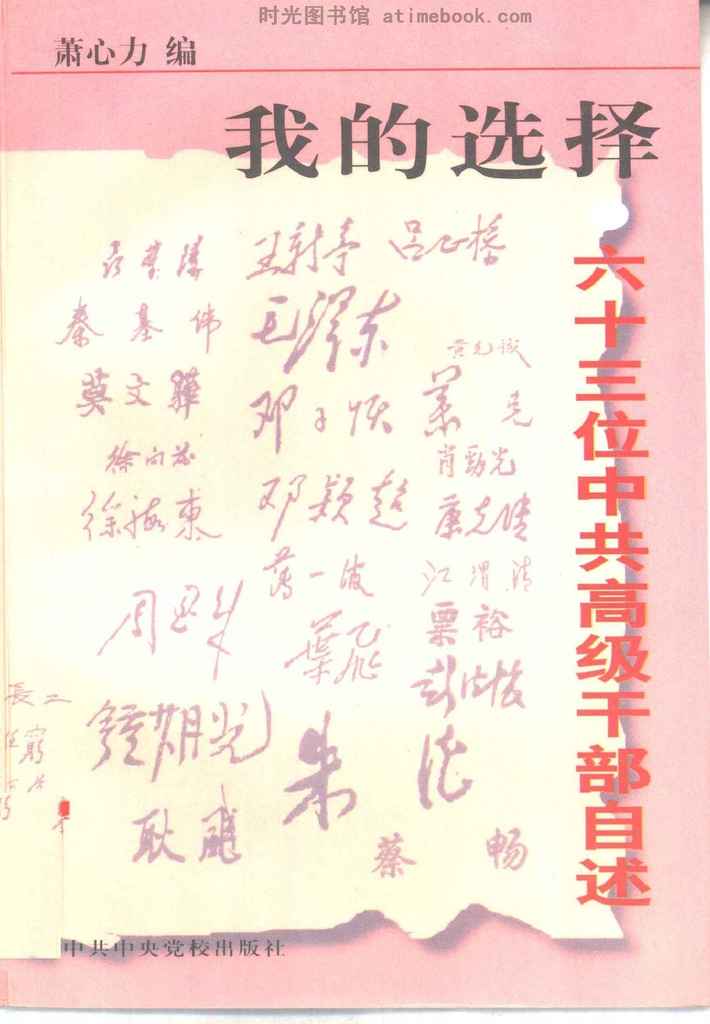 时光图书馆 atimebook.com
萧心力 编
我的选择
六十三位中共高级干部自述
聂荣臻 王新亭 吕正操
秦基伟 毛泽东 黄克诚
莫文骅 邓子恢 萧克
徐向前 肖劲光
徐海东 邓颖超 康克清
薄一波 江渭清
周恩来 叶飞 粟裕
彭德怀
钟期光 朱德
耿飚 蔡畅
中共中央党校出版社